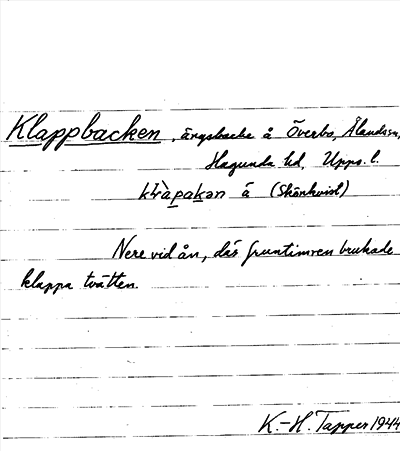 Klappbacken, ängsbacke å Överbo, Ålandsn,
Hagunda hd, Upps. l.
klàpakan å (Skönkvist)
Nere vid ån, där fruntimren brukade
klappa tvätten.
K.-H. Tapper 1944